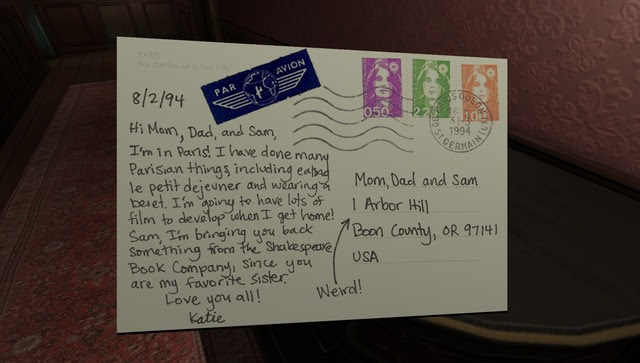 PARIS
PAR AVION
8/2/94
0,50
2,20
1994
ST GERMAIN
Hi Mom, Dad, and Sam,
I'm in Paris! I have done many
Parisian things, including eating
le petit dejeuner and wearing a
beret. I'm going to have lots of
film to develop when I get home!
Sam, I'm bringing you back
something from the Shakespeare
Book Company, since you
are my favorite sister.
Love you all!
Katie
Mom, Dad and Sam
1 Arbor Hill
Boon County, OR 97141
USA
Weird!